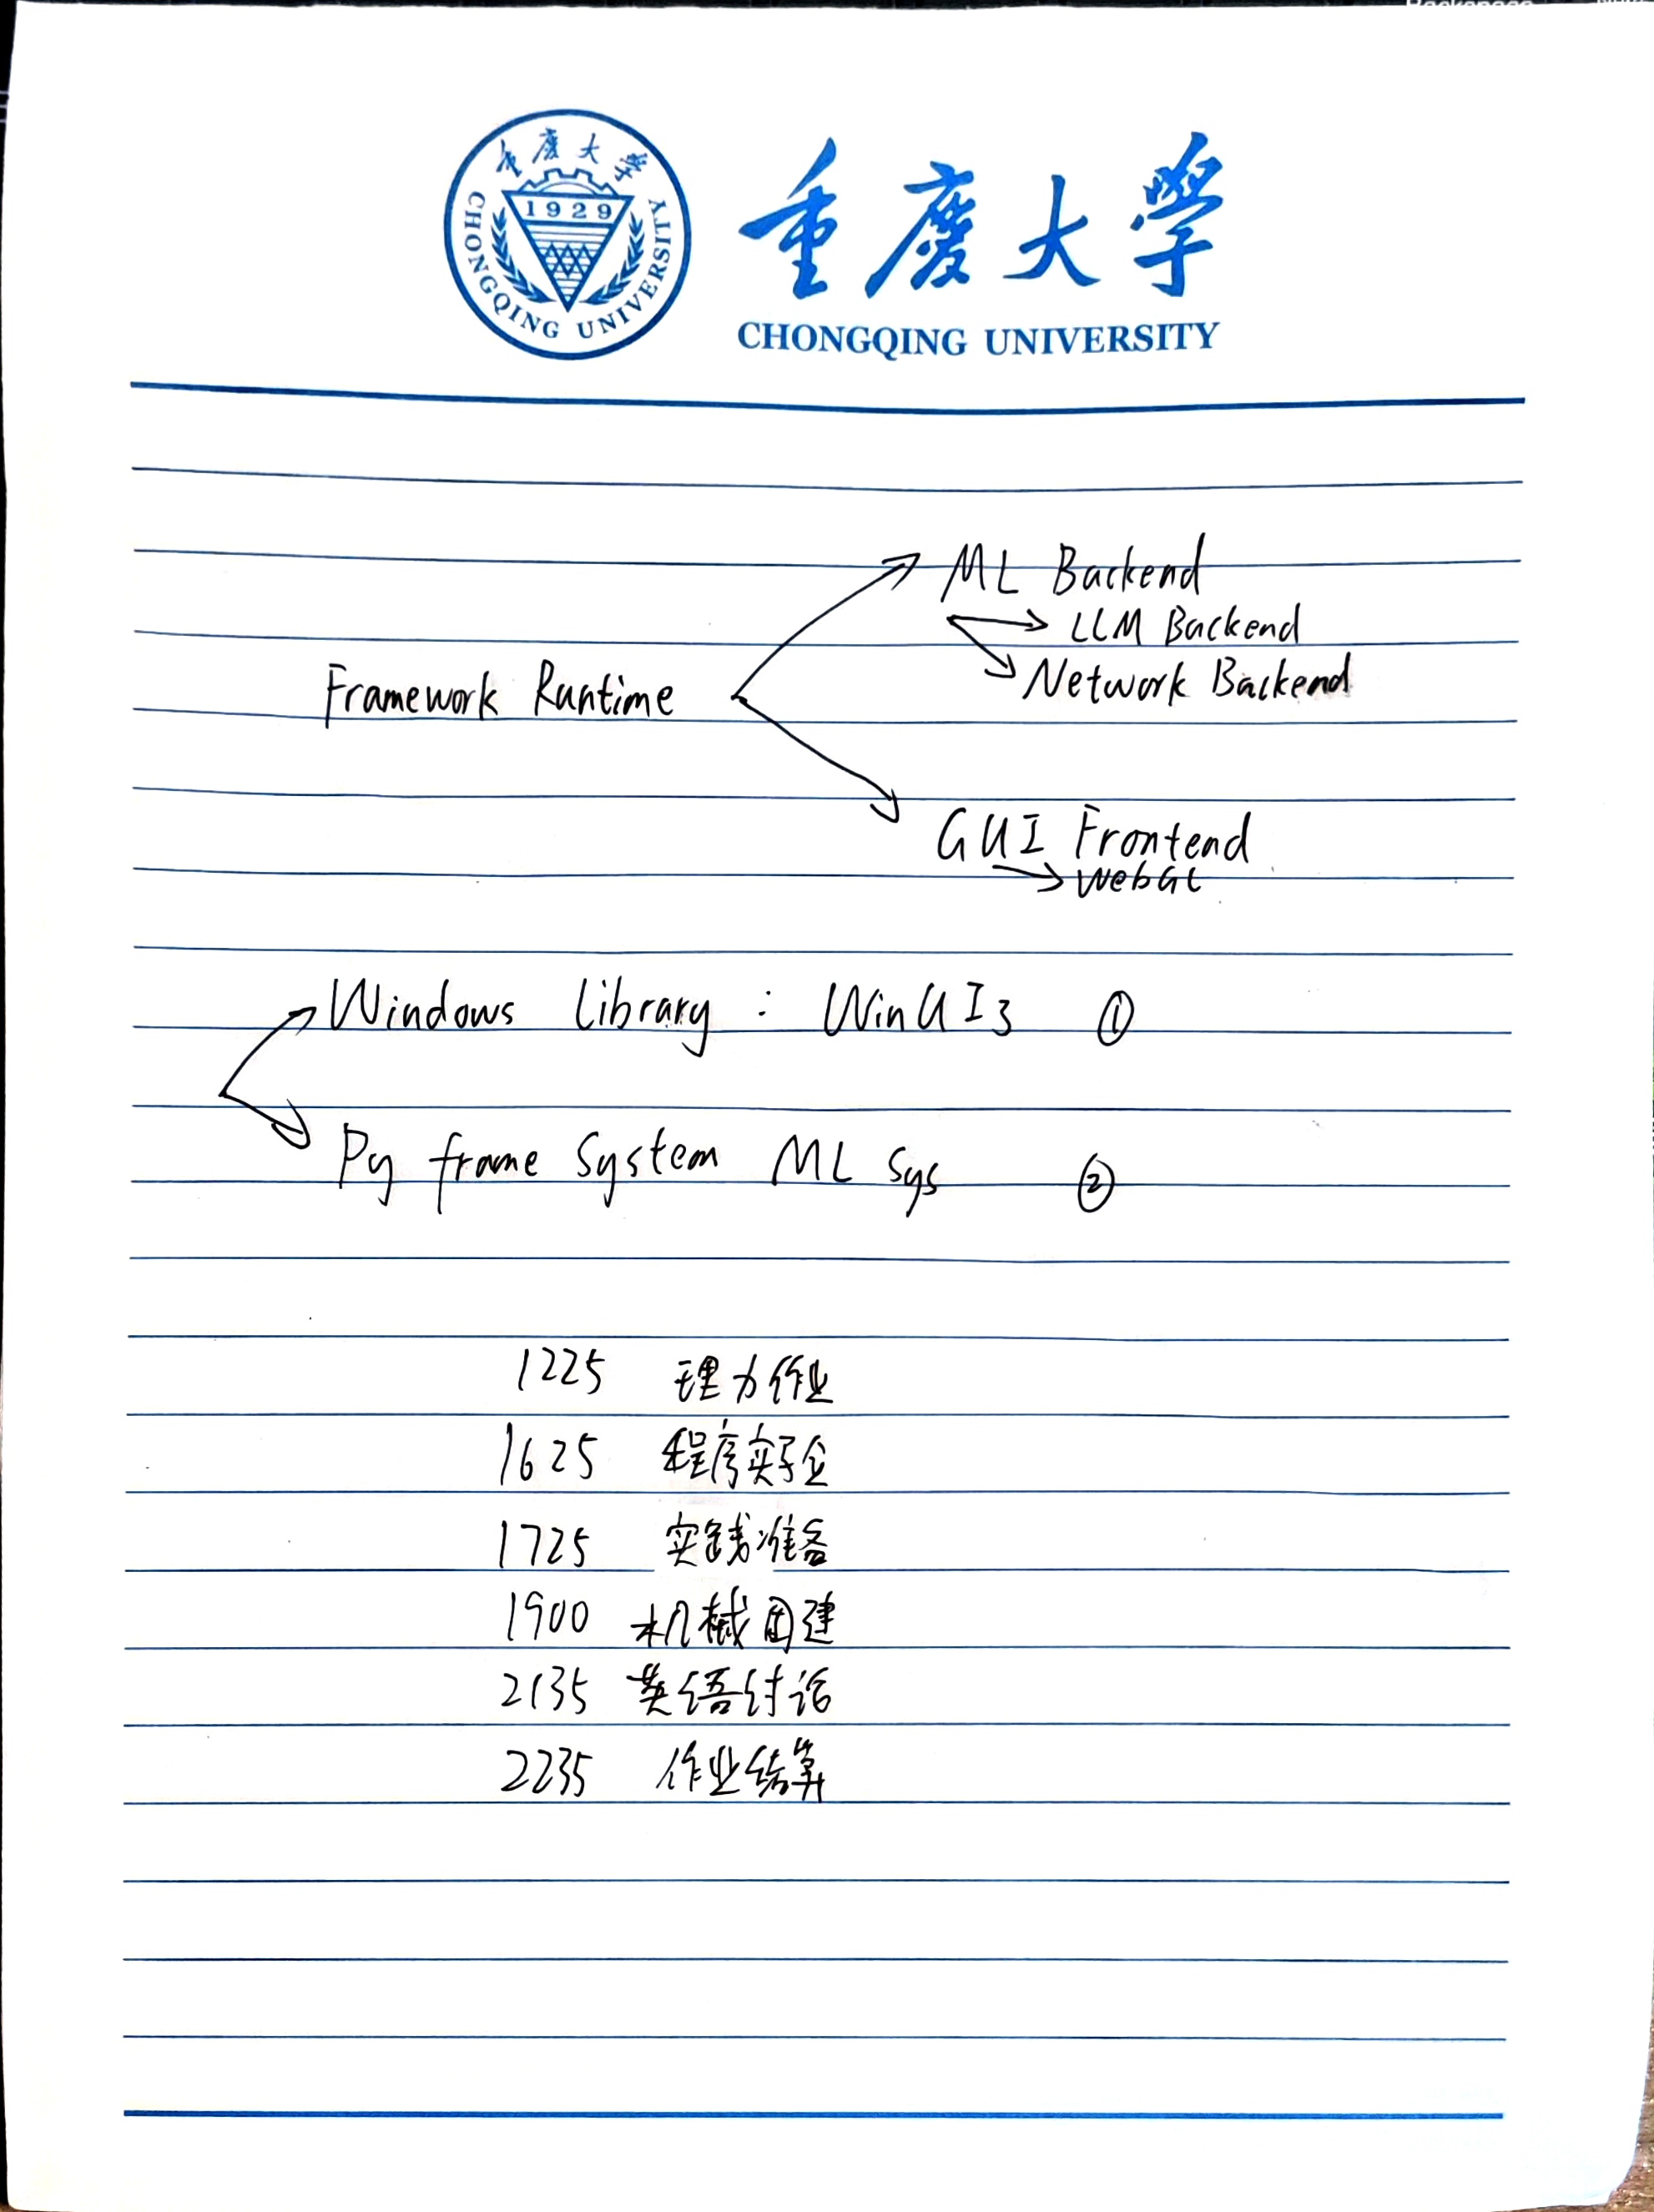 重慶大學
1929
CHONGQING UNIVERSITY
重慶大學
CHONGQING UNIVERSITY
ML Backend
LLM Backend
Framework Runtime
Network Backend
GUI Frontend
WebGL
Windows Library : WinUI3 ①
Py frame System ML Sys ②
1225 理力作业
1625 程序实验
1725 实践准备
1900 机械团建
2135 英语讨论
2235 作业结算